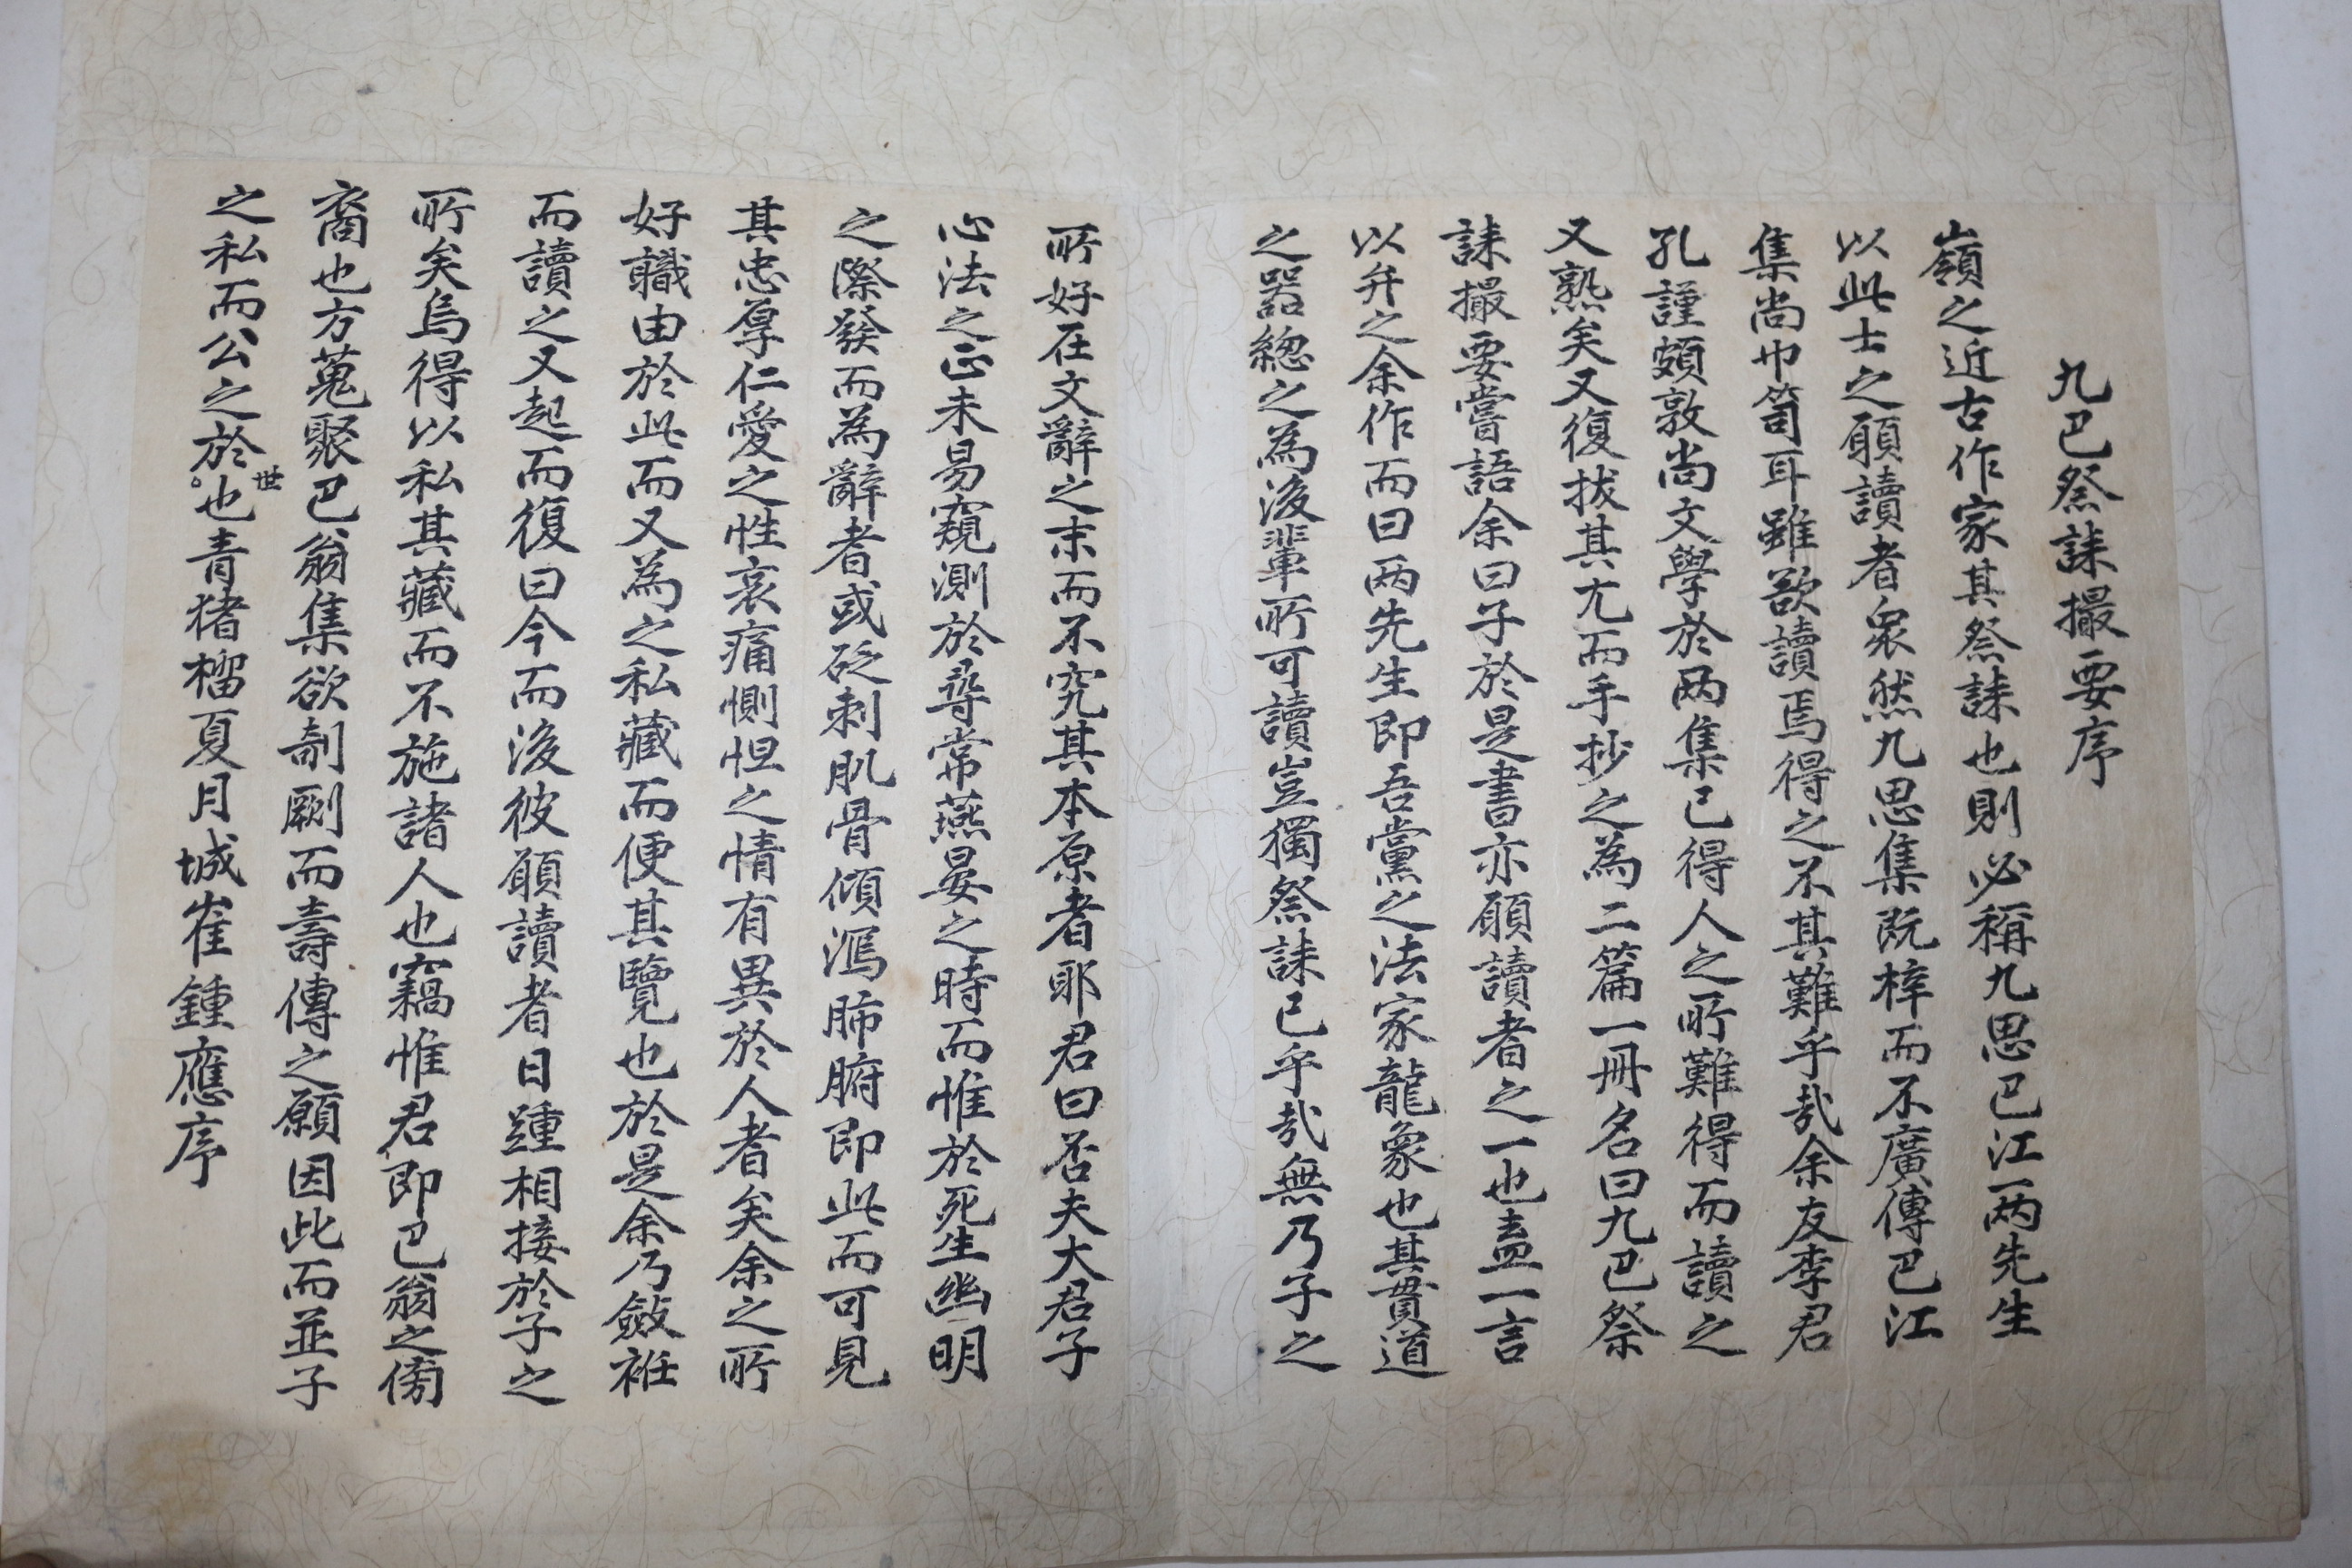 九巴祭誄撮要序
嶺之近古作家其祭誄也則必稱九思巴江兩先生
以此士之願讀者衆然九思集既梓而不廣傳巴江
集尚巾笥耳雖欲讀焉得之不其難乎哉余友李君
孔謹頗敦尚文學於兩集已得人之所難得而讀之
又熟矣又復拔其尤而手抄之為二篇一冊名曰九巴祭
誄撮要嘗語余曰子於是書亦願讀者之一也盍一言
以弁之余作而曰兩先生即吾黨之法家龍象也其貫道
之器緫之為後輩所可讀豈獨祭誄已乎哉無乃子之
所好在文辭之末而不究其本原者耶君曰否夫大君子
心法之正未易窺測於尋常燕晏之時而惟於死生幽明
之際發而為辭者或砭刺肌骨傾瀉肺腑即此而可見
其忠厚仁愛之性哀痛惻怛之情有異於人者矣余之所
好職由於此而又為之私藏而便其覽也於是余乃斂袵
而讀之又起而復曰今而後彼願讀者日踵相接於子之
所矣烏得以私其藏而不施諸人也竊惟君即巴翁之傍
裔也方蒐聚巴翁集欲剞劂而壽傳之願因此而並子
之私而公之於世也青猪榴夏月城崔鍾應序